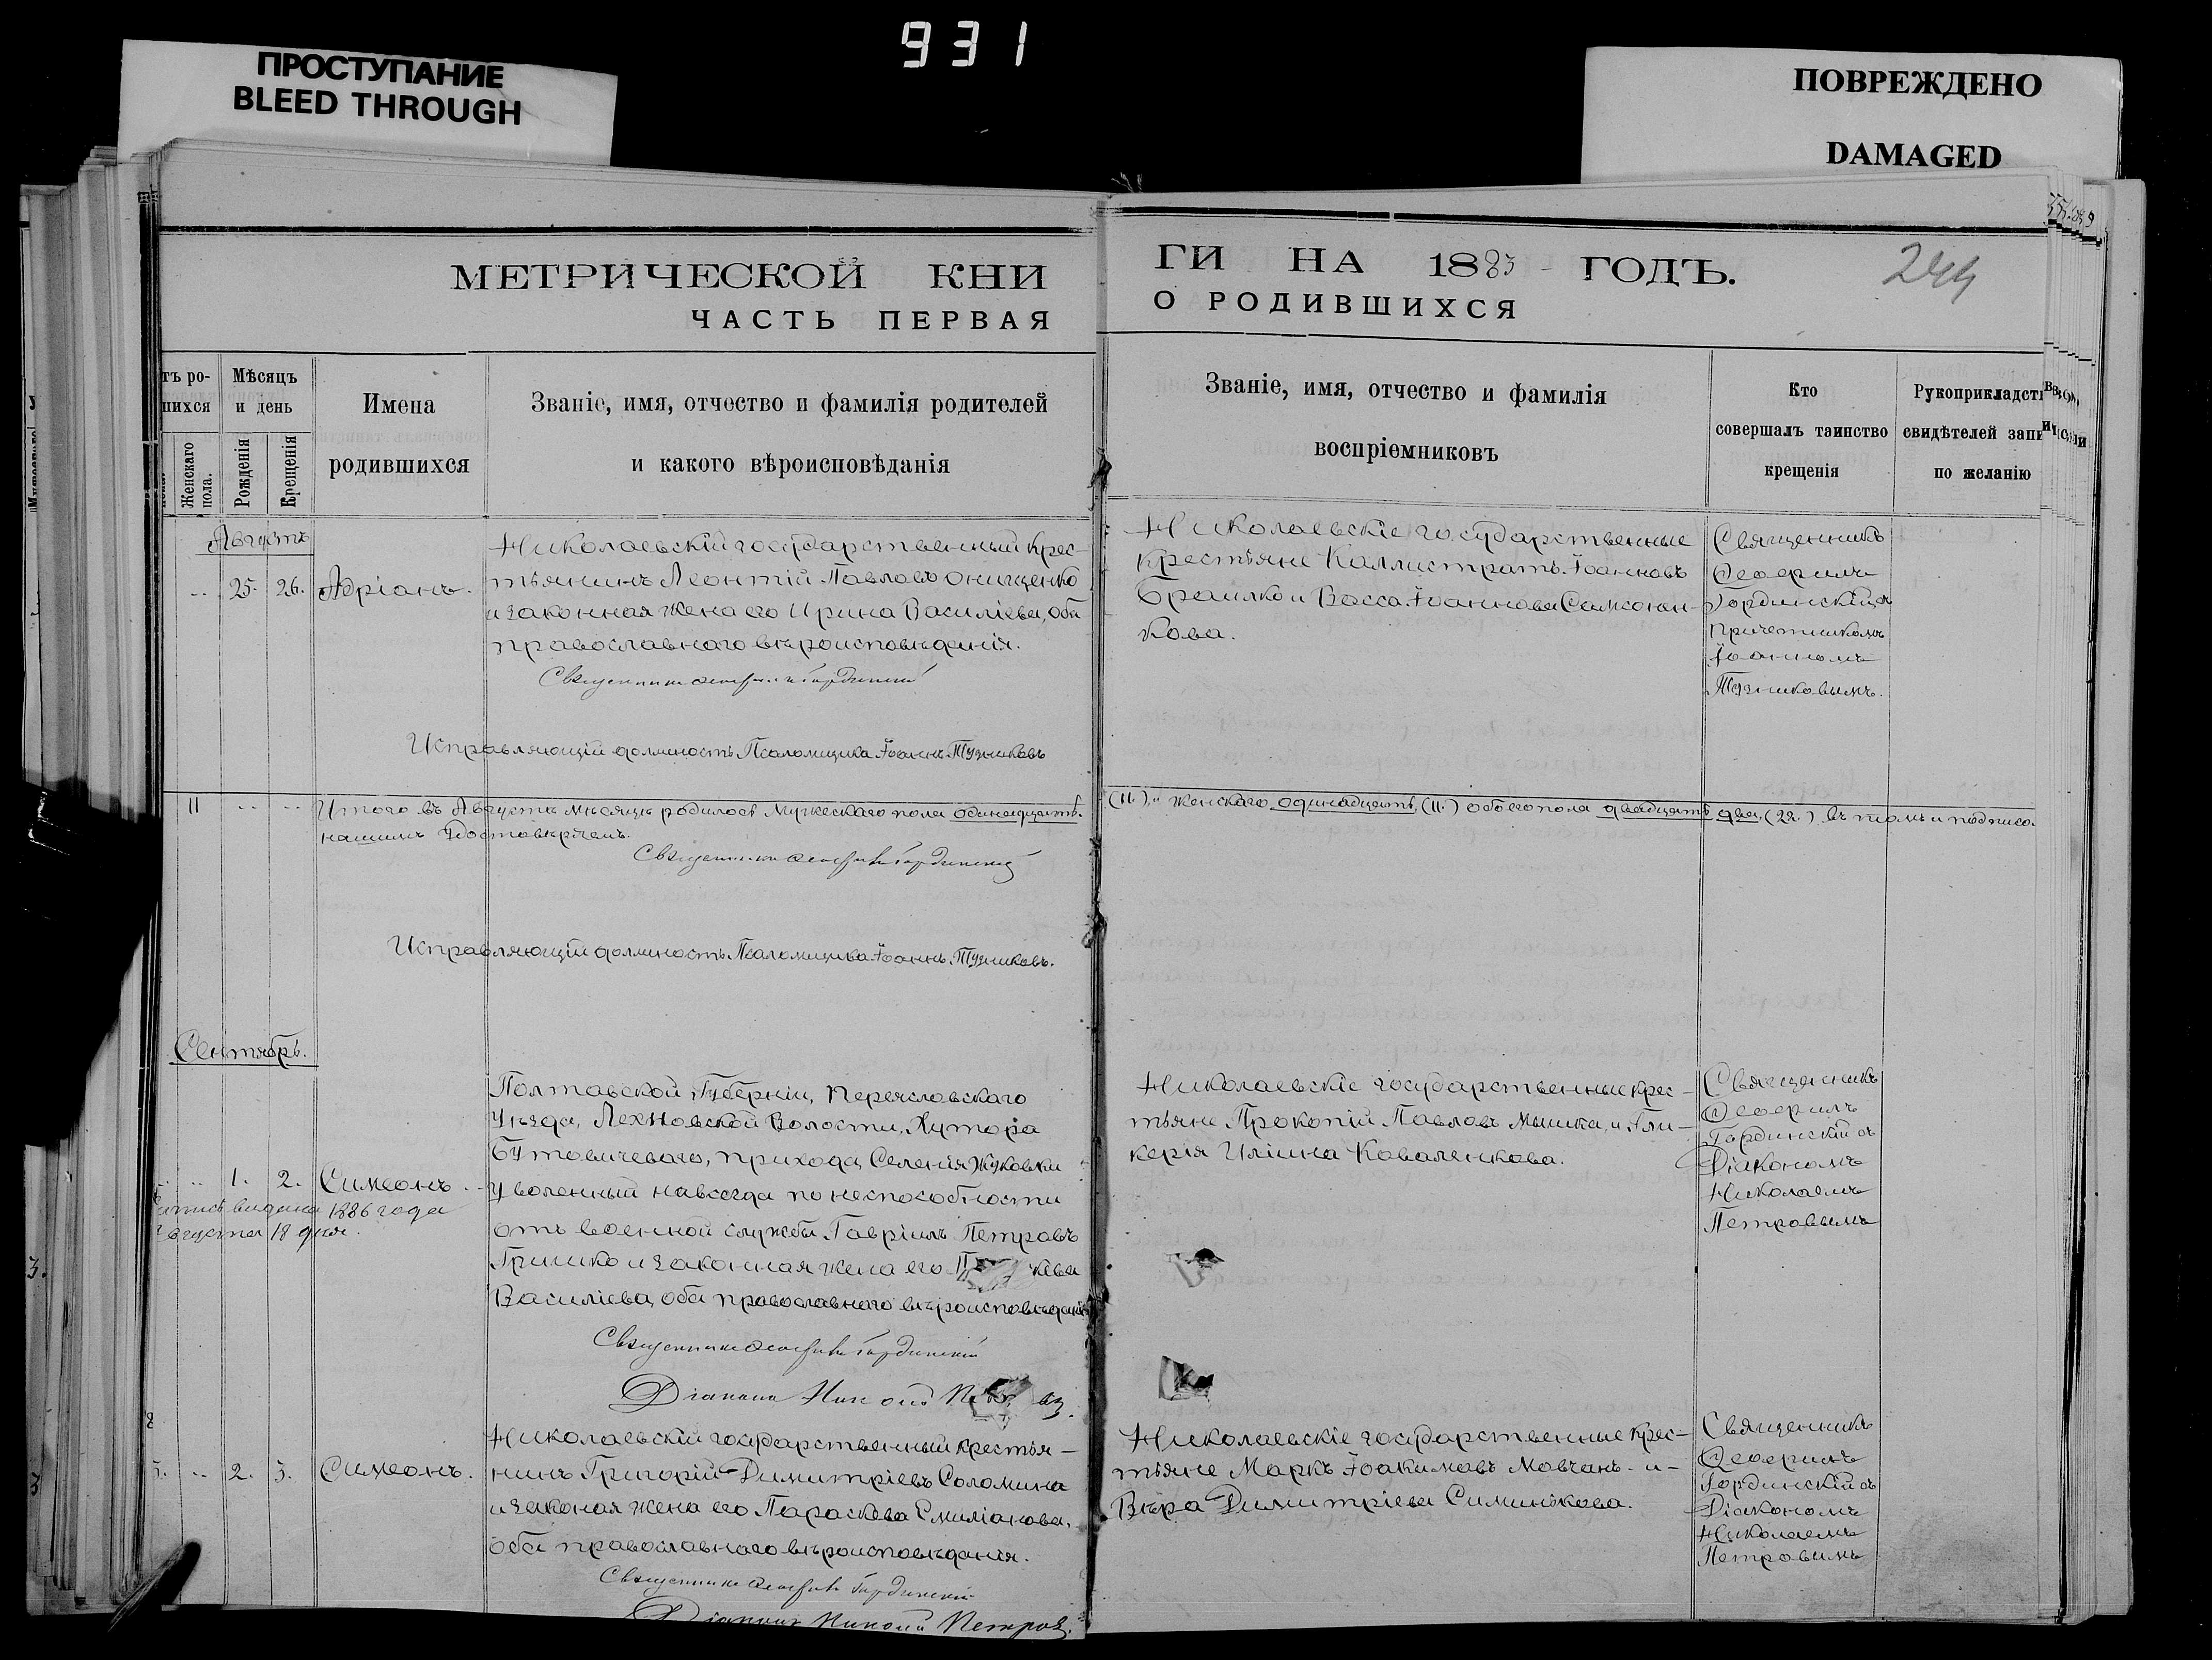 931
ПРОСТУПАНИЕ
BLEED THROUGH
ПОВРЕЖДЕНО
DAMAGED
МЕТРИЧЕСКОЙ КНИ
ЧАСТЬ ПЕРВАЯ
тъ ро-
Мѣсяцъ
и день
Женскаго
пола.
Рожденія
Крещенія
Имена
родившихся
Званіе, имя, отчество и фамилія родителей
и какого вѣроисповѣданія
Августъ
25. 26. Адріанъ.
Николаевскій государственный крес-
тьянинъ Леонтій Павловъ Онищенко
и законная жена его Ирина Василіева, оба
православнаго вѣроисповѣданія.
Священникъ Гординскій
Исправляющій должность Псаломщика Іоаннъ Тузниковъ
11
Итого въ Августѣ мѣсяцѣ родилось Мужескаго пола одинадцать.
нашимъ удостовѣряемъ.
Священникъ Гординскій
Исправляющій должность Псаломщика Іоаннъ Тузниковъ.
Сентябрь.
Полтавской Губерніи, Переяславскаго
Уѣзда, Лехновской Волости, Хутора
прихода Селенія Жуковки
1. 2. Симеонъ.
уволенный навсегда по неспособности
видана 1886 года
18 дня.
отъ военной службы Гавріилъ Петровъ
Гришко и законная жена его
Василіева, оба православнаго вѣроисповѣданія
Священникъ Гординскій
Діаконъ
Николаевскій государственный крестья-
2. 3. Симеонъ.
нинъ Григорій Димитріевъ Соломина
и законая жена его Параскева Емиліанова,
оба православнаго вѣроисповѣданія.
Священникъ Гординскій
Діаконъ Николай Петровъ.
ГИ НА 1883 ГОДЪ.
О РОДИВШИХСЯ
244
Званіе, имя, отчество и фамилія
воспріемниковъ
Кто
совершалъ таинство
крещенія
Рукоприкладст
свидѣтелей запи
по желанію
Николаевскіе государственные
крестьяне Каллистратъ Іоанновъ
Браилко и Васса Іоаннова Самсонен-
кова.
Священникъ
Гординскій съ
Причетникомъ
Іоанномъ
Тузниковымъ.
(11.) и Женскаго одинадцать, (11.) обоего пола двадцать два, (22.) въ томъ и подписо-
Николаевскіе государственные крес-
тьяне Прокопій Павловъ Мышка, и Гли-
керія Иліина Коваленкова.
Священникъ
Гординскій съ
Діакономъ
Николаемъ
Петровымъ
Николаевскіе государственные крес-
тьяне Маркъ Іоакимовъ Мовчанъ и
Вѣра Димитріева Симинькова.
Священникъ
Гординскій съ
Діакономъ
Николаемъ
Петровымъ